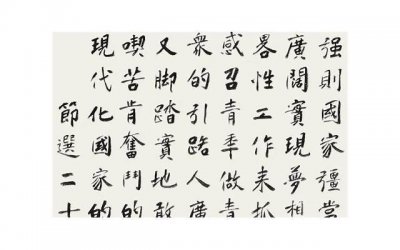 强則國家彊當
廣闊實現夢
畧性工作来抓
感召青年做青
衆的引路人廣
又脚踏實地敢
喫苦肯奮鬥的
現代化國家的
節選二十